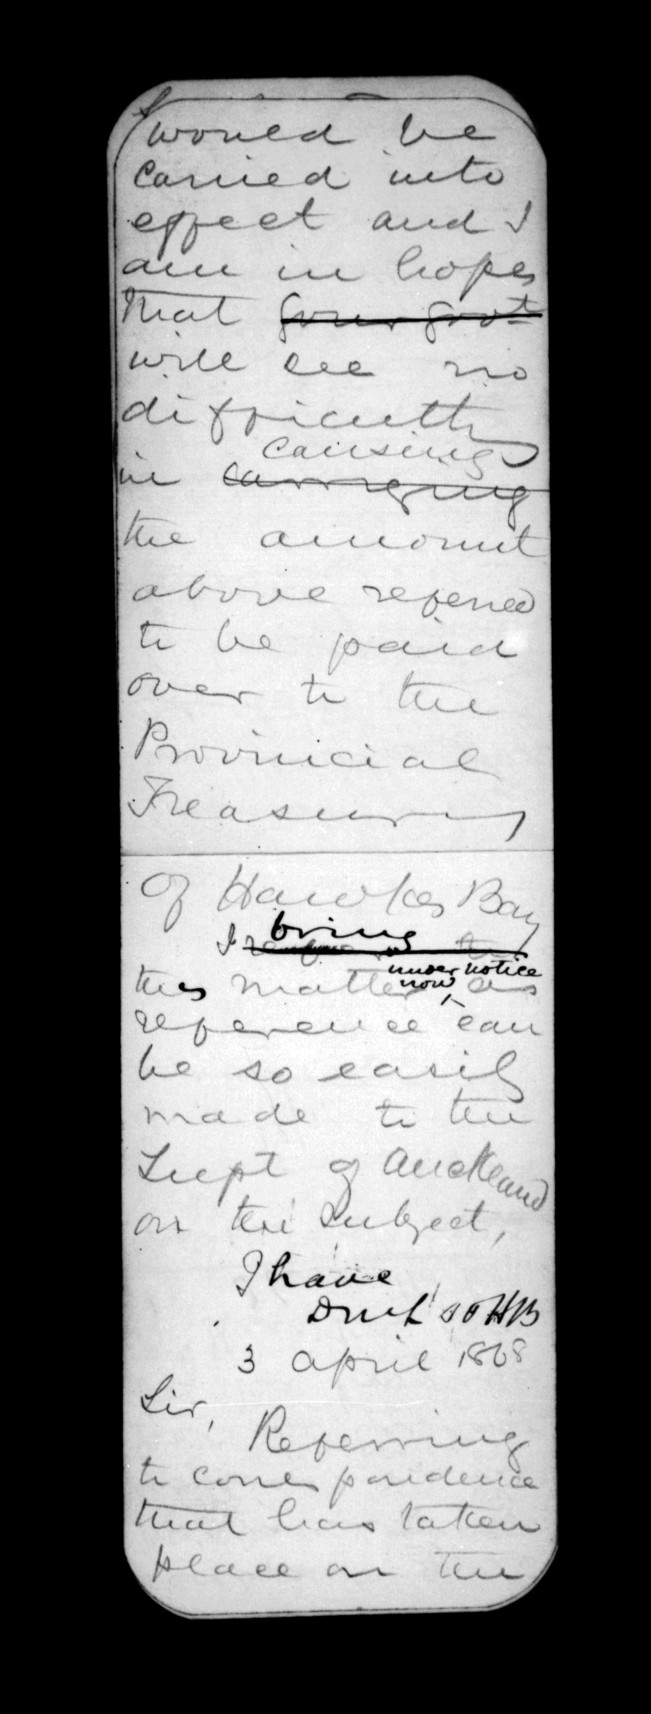 would be
carried into
effect and I
am in hopes
that your govt
will see no
difficulty
causing
in carrying
the amount
above referred
to be paid
over to the
Provincial
Treasury
of Hawkes Bay
bring
I refer to
under notice
this matter now as
reference can
be so easily
made to the
Supt of Auckland
on the subject,
I have
DMcL S of HB
3 April 1868
Sir,
Referring
to correspondence
that has taken
place on the